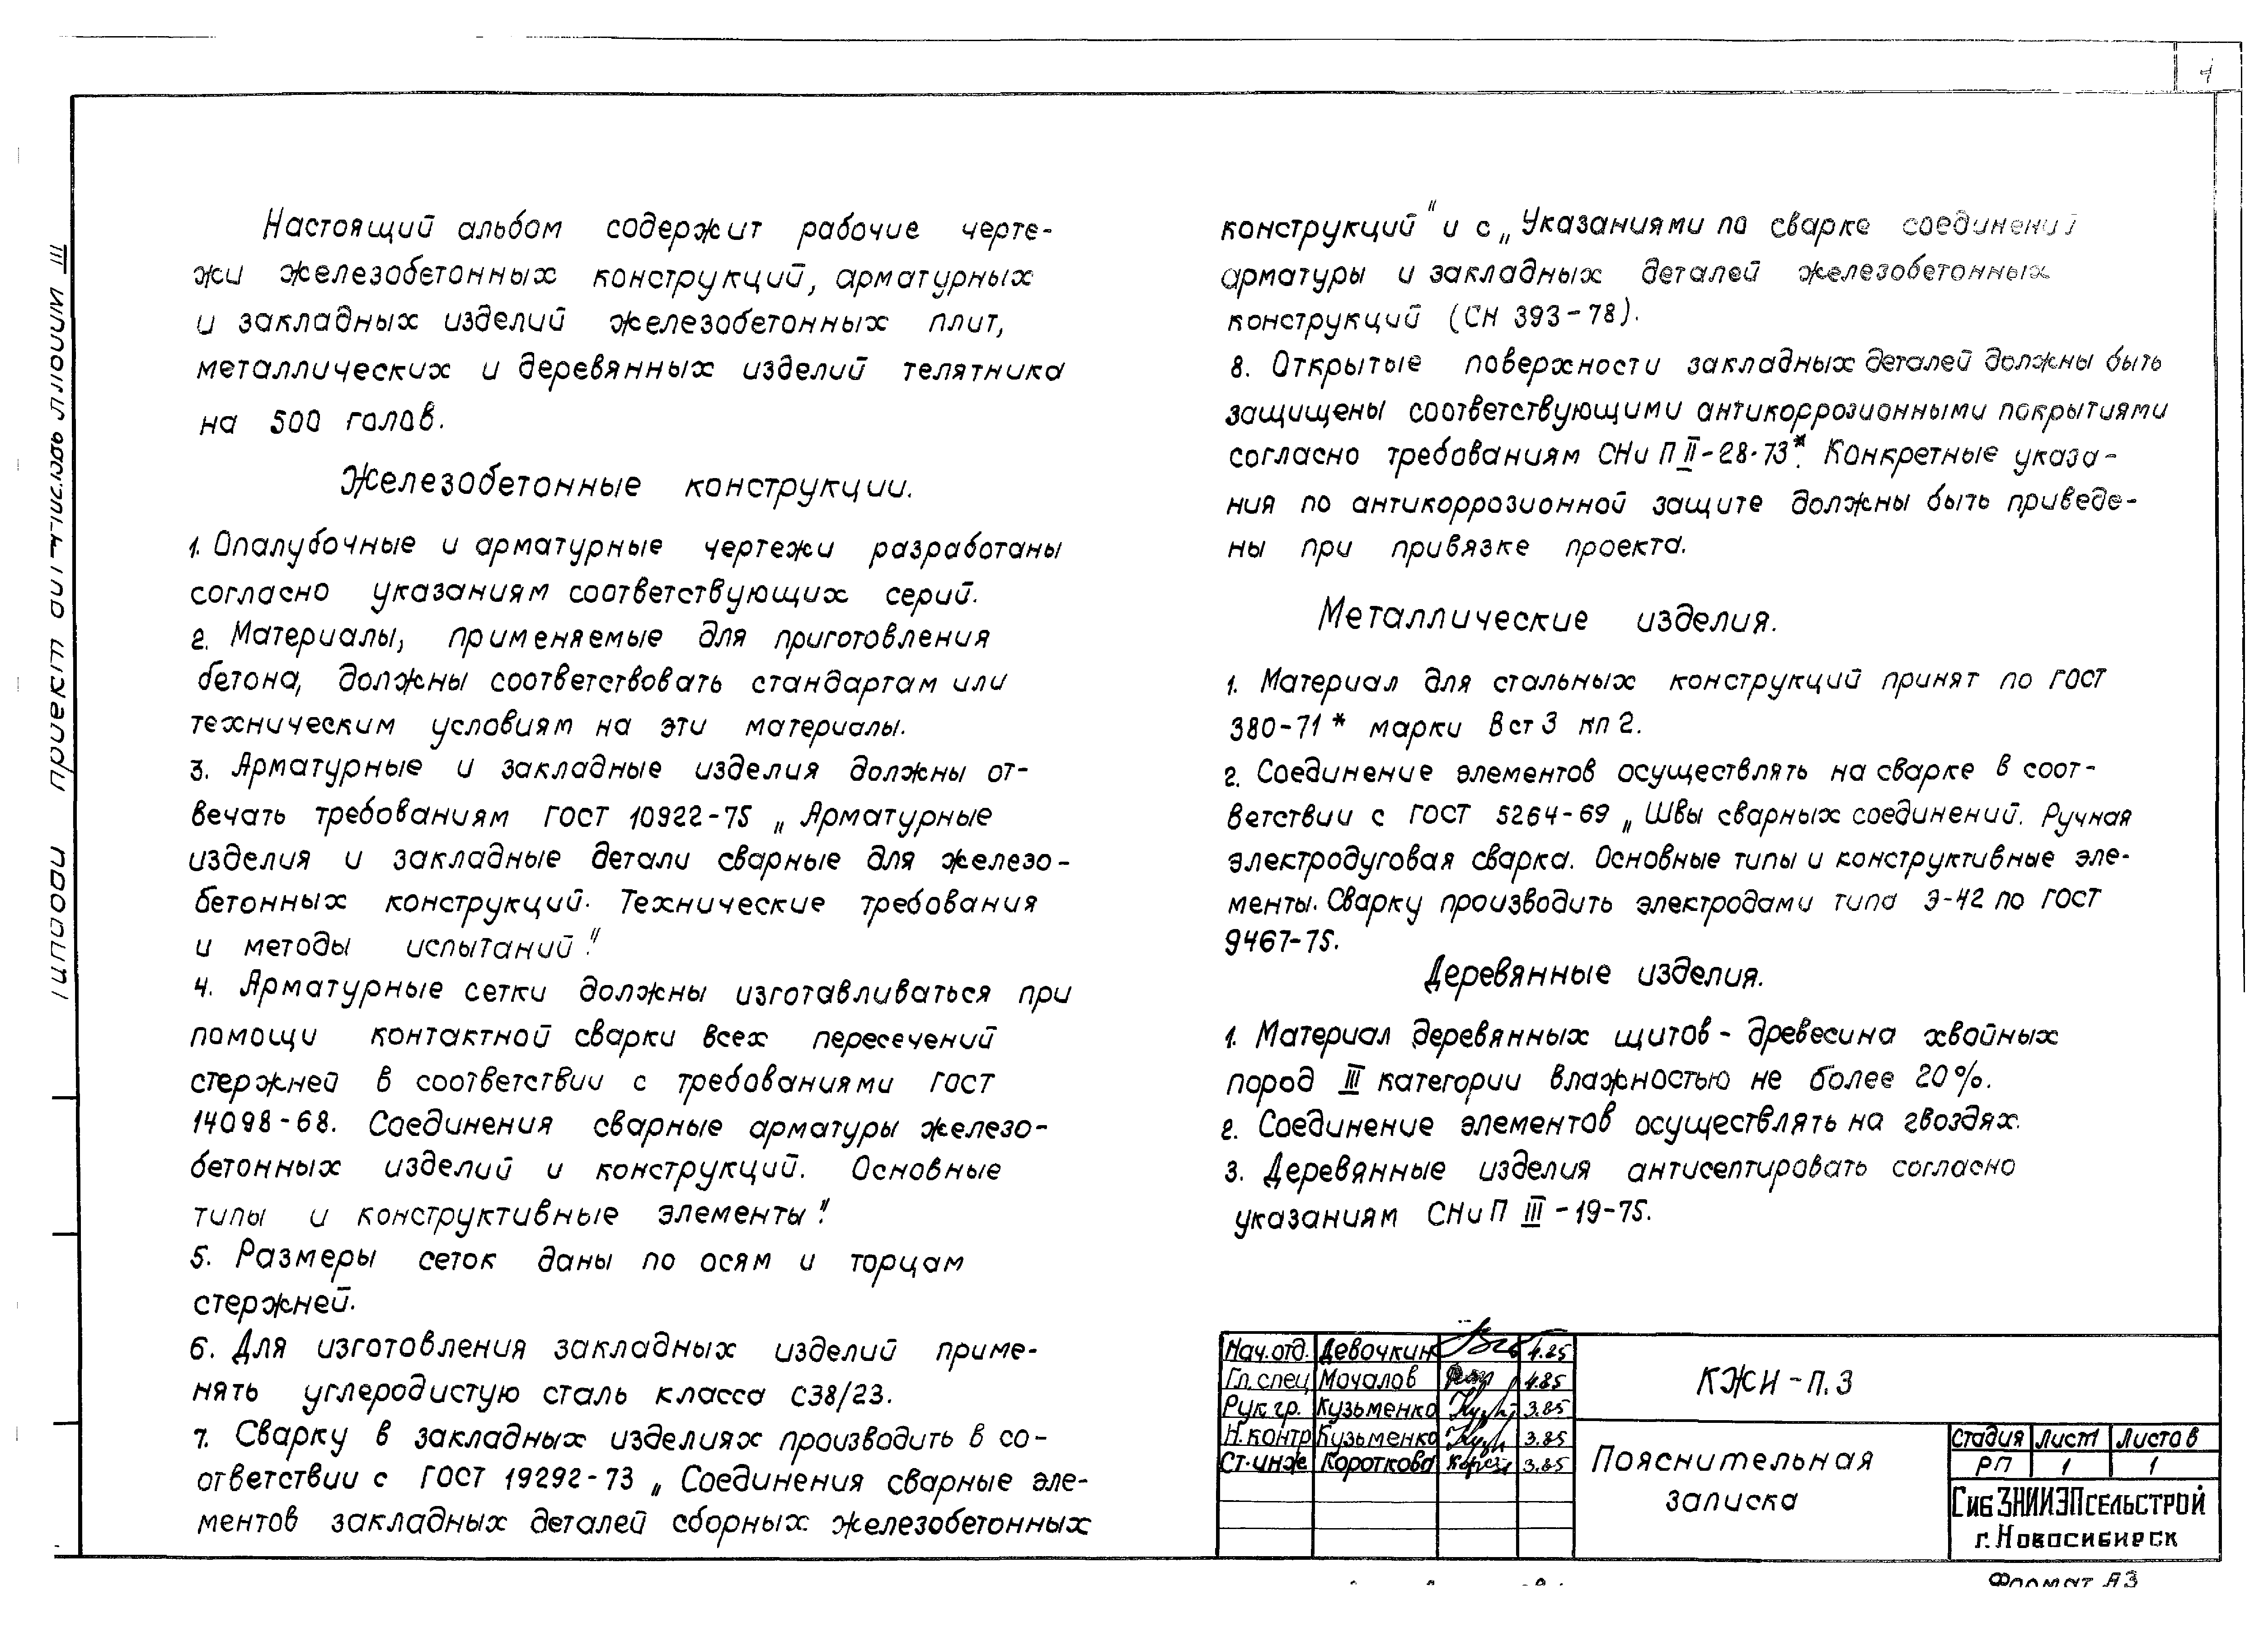 Настоящий альбом содержит рабочие черте-
жи железобетонных конструкций, арматурных
и закладных изделий железобетонных плит,
металлических и деревянных изделий телятника
на 500 голов.
Железобетонные конструкции.
1. Опалубочные и арматурные чертежи разработаны
согласно указаниям соответствующих серий.
2. Материалы, применяемые для приготовления
бетона, должны соответствовать стандартам или
техническим условиям на эти материалы.
3. Арматурные и закладные изделия должны от-
вечать требованиям ГОСТ 10922-75 „Арматурные
изделия и закладные детали сварные для железо-
бетонных конструкций. Технические требования
и методы испытаний".
4. Арматурные сетки должны изготавливаться при
помощи контактной сварки всех пересечений
стержней в соответствии с требованиями ГОСТ
14098-68. Соединения сварные арматуры железо-
бетонных изделий и конструкций. Основные
типы и конструктивные элементы".
5. Размеры сеток даны по осям и торцам
стержней.
6. Для изготовления закладных изделий приме-
нять углеродистую сталь класса С38/23.
7. Сварку в закладных изделиях производить в со-
ответствии с ГОСТ 19292-73 „Соединения сварные эле-
ментов закладных деталей сборных железобетонных
конструкций" и с „Указаниями по сварке соединений
арматуры и закладных деталей железобетонных
конструкций (СН 393-78).
8. Открытые поверхности закладных деталей должны быть
защищены соответствующими антикоррозионными покрытиями
согласно требованиям СНиП II-28-73*. Конкретные указа-
ния по антикоррозионной защите должны быть приведе-
ны при привязке проекта.
Металлические изделия.
1. Материал для стальных конструкций принят по ГОСТ
380-71* марки Вст3 кп2.
2. Соединение элементов осуществлять на сварке в соот-
ветствии с ГОСТ 5264-69 „Швы сварных соединений. Ручная
электродуговая сварка. Основные типы и конструктивные эле-
менты. Сварку производить электродами типа Э-42 по ГОСТ
9467-75.
Деревянные изделия.
1. Материал деревянных щитов - древесина хвойных
пород III категории влажностью не более 20%.
2. Соединение элементов осуществлять на гвоздях.
3. Деревянные изделия антисептировать согласно
указаниям СНиП III-19-75.
Нач.отд. Девочкин 4.85
Гл.спец Мочалов 4.85
Рук.гр. Кузьменко 3.85
Н.контр Кузьменко 3.85
Ст.инж Короткова 3.85
КЖИ-П.3
Пояснительная
записка
Стадия Лист Листов
РП 1 1
СибЗНИИЭПсельстрой
г.Новосибирск
Формат А3